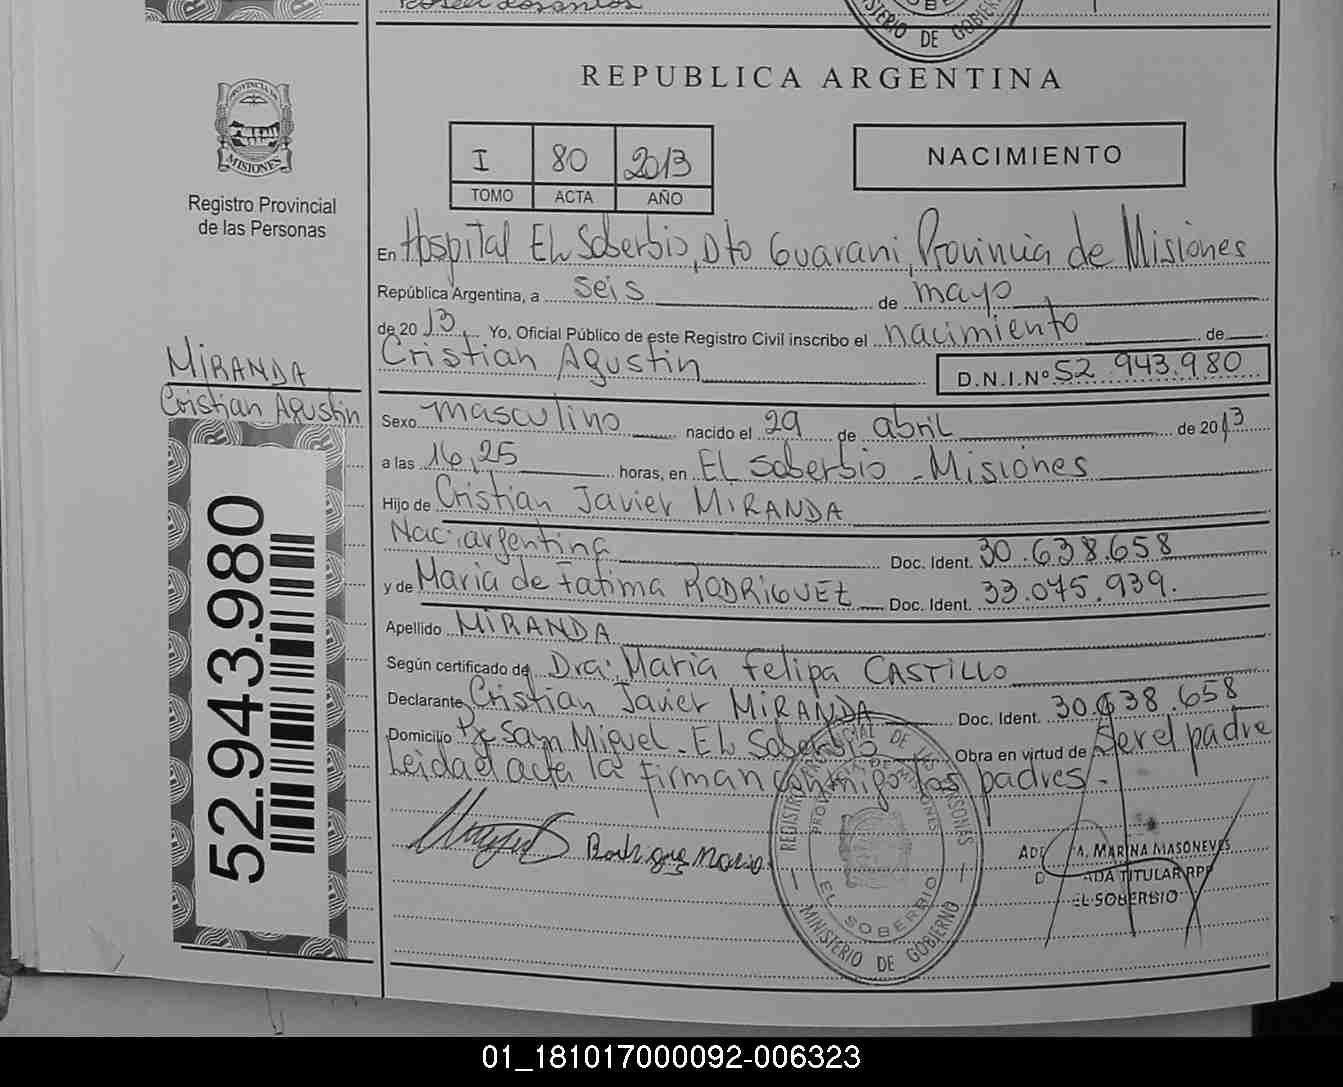 MINISTERIO DE GOBIERNO
REPUBLICA ARGENTINA
PROVINCIA DE
MISIONES
Registro Provincial
de las Personas
I 80 2013
TOMO ACTA AÑO
NACIMIENTO
En Hospital EL Soberbio, Dto Guarani, Provincia de Misiones
República Argentina, a seis de mayo
de 2013. Yo, Oficial Público de este Registro Civil inscribo el nacimiento de
Cristian Agustin D.N.I.Nº 52.943.980
MIRANDA
Cristian Agustin
52.943.980
Sexo masculino nacido el 29 de abril de 2013
a las 16,25 horas, en EL Soberbio - Misiones
Hijo de Cristian Javier MIRANDA
Nac: argentina Doc. Ident. 30.638.658
y de Maria de Fatima RODRIGUEZ Doc. Ident. 33.075.939.
Apellido MIRANDA
Según certificado de Dra: Maria Felipa CASTILLO
Declarante Cristian Javier MIRANDA Doc. Ident. 30.638.658
Domicilio San Miguel - EL Soberbio Obra en virtud de Ser el padre
Leida el acta la firman conmigo los padres -
Rodriguez Maria
REGISTRO PROVINCIAL DE LAS PERSONAS
PROVINCIA DE MISIONES
EL SOBERBIO
MINISTERIO DE GOBIERNO
A. MARINA MASONEVES
TITULAR RPP
EL SOBERBIO
01_181017000092-006323